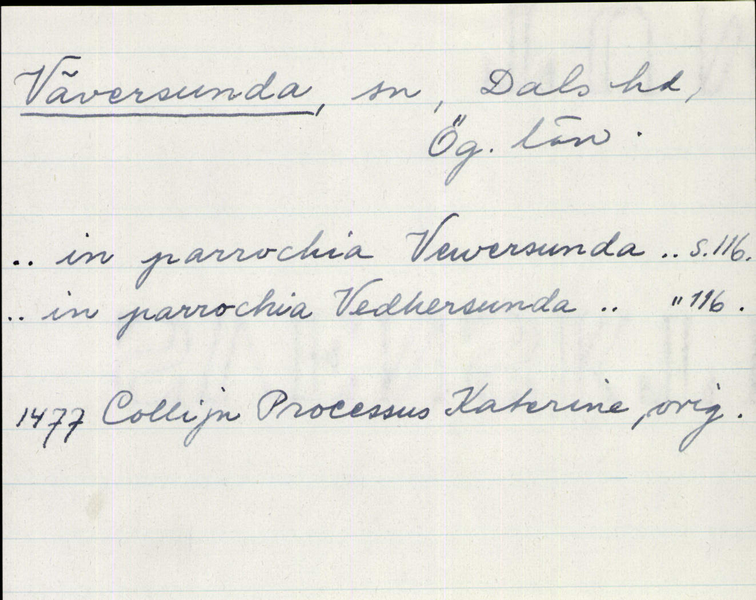 Väversunda, sn, Dals hd,
Ög. län.
.. in parrochia Vewersunda .. s. 116.
.. in parrochia Vedhersunda .. " 116.
1477 Collijn Processus Katerine, orig.